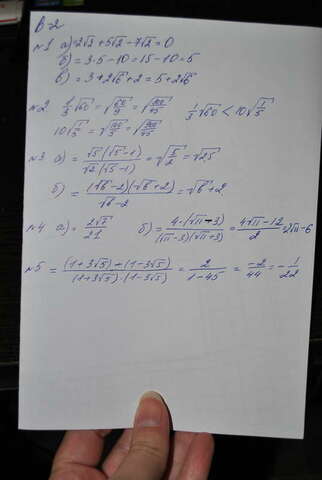 В-2
№1 а) 2√2 + 5√2 - 7√2 = 0
б) = 3·5 - 10 = 15 - 10 = 5
в) = 3 + 2√6 + 2 = 5 + 2√6
№2 1/3 √60 = √(60/9) = 1/3 √60 < 10√(1/5)
10√(1/5) =
№3 а) = √5(√5-1) / √2(√5-1) = √(5/2) = √2,5
б) = (√b-2)(√b+2) / √b-2 = √b+2
№4 а) = 2√7/21 б) = 4·(√11-3) / (√11-3)(√11+3) = 4√11-12 / 2 = 2√11-6
№5 = (1+3√5)+(1-3√5) / (1+3√5)·(1-3√5) = 2 / 1-45 = -2/44 = -1/22